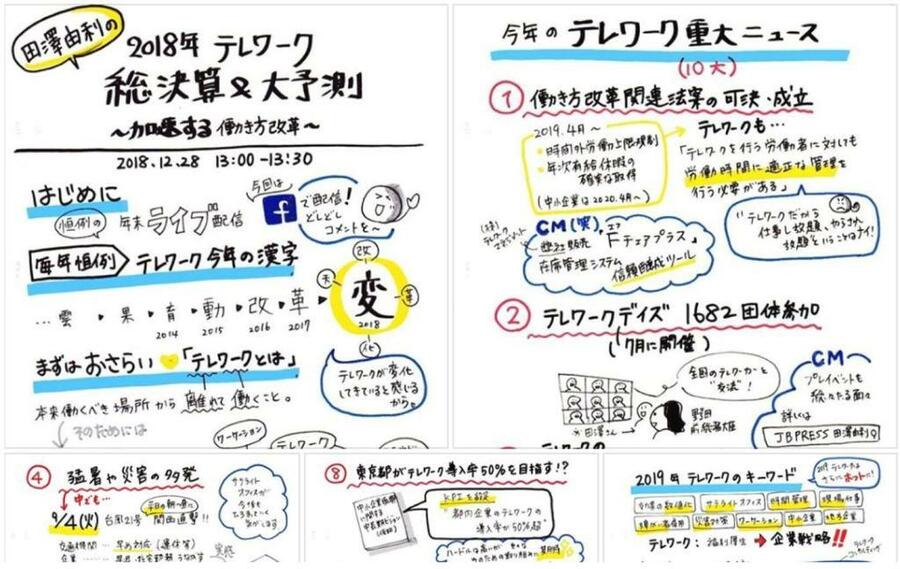 田澤由利の
2018年 テレワーク
総決算&大予測
〜加速する 働き方改革〜
2018.12.28 13:00-13:30
はじめに
恒例の 年末ライブ配信
今回は
f で配信!
どしどし
コメントを〜
毎年恒例 テレワーク今年の漢字
…雲・果・育・動・改・革
2014 2015 2016 2017
改
天
変
革
2018
化
まずはおさらい 「テレワークとは」
テレワークが変化
してきていると感じる
から。
本来働くべき場所から 離れて 働くこと。
そのためには
ワーケーション
テレワーク
今年の テレワーク重大ニュース
(10大)
① 働き方改革関連法案の可決・成立
2019.4月〜
・時間外労働上限規制
・年次有給休暇の
確実な取得
(中小企業は2020.4月〜)
テレワークも…
「テレワークを行う労働者に対しても
労働時間に適正な管理を
行う必要がある」
"テレワークだから
仕事し放題、やらされ
放題ということはナイ!
CM(笑)
(株)
テレワークマネジメント
Fチェアプラス」
在席管理システム
信頼醸成ツール
② テレワークデイズ 1682団体参加
(7月に開催)
全国のテレワーカーと
"交流"!
田澤さん
野田
前総務大臣
CM
プレイベントも
続々たる面々
詳しくは
JBPRESS 田澤由利
テレワークの
④ 猛暑や災害の多発
中でも…
9/4(火) 台風21号 関西直撃!!
サテライト
オフィスが
今後も
交通機関…早め対応(運休等)
企業
実感
⑧ 東京都がテレワーク導入率50%を目指す!?
KPIを設定
"都内企業のテレワークの
導入率が50%超"
ハードルは高いが
2019年 テレワークのキーワード
2019 テレワークは
さらにホットに!
効果の数値化 サテライトオフィス 時間管理 現場仕事
障がい者雇用 災害対策 ワーケーション 中小企業 地方企業
テレワーク:福利厚生 → 企業戦略!!
テレワーク
コンサルティング